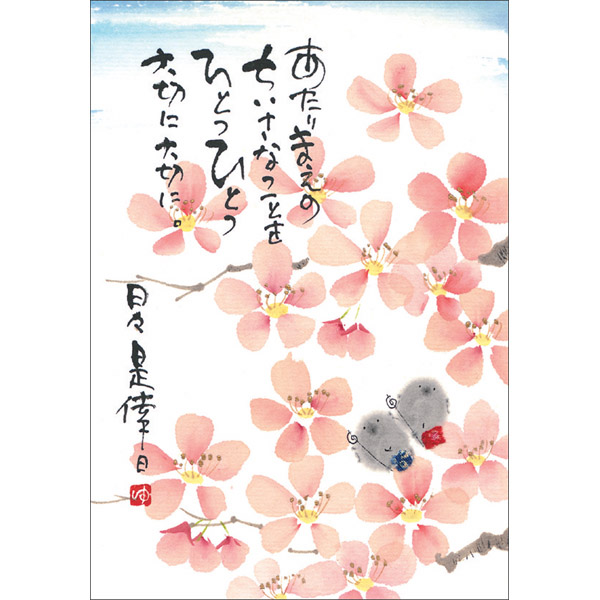 あたりまえの
ちいさなことを
ひとつひとつ
大切に大切に。
日々是倖日
ゆ